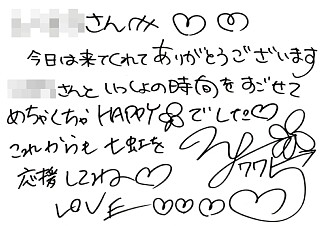 さんへ ♡ ♡
今日は来てくれてありがとうございます
さんといっしょの時間をすごせて
めちゃくちゃ HAPPY でした♡
これからも 七虹を
応援してね♡
LOVE ♡♡♡